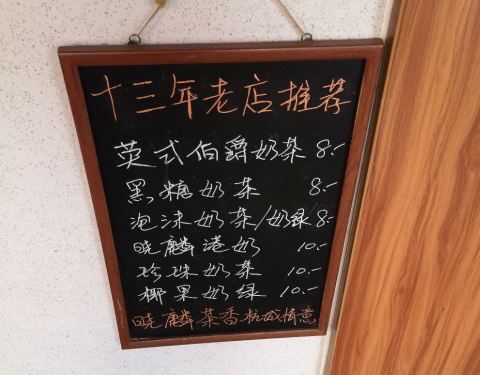 十三年老店推荐
英式伯爵奶茶 8.-
黑糖奶茶 8.-
泡沫奶茶/奶绿 8.-
晓麟港奶 10.-
珍珠奶茶 10.-
椰果奶绿 10.-
晓麟茶香杭城情意